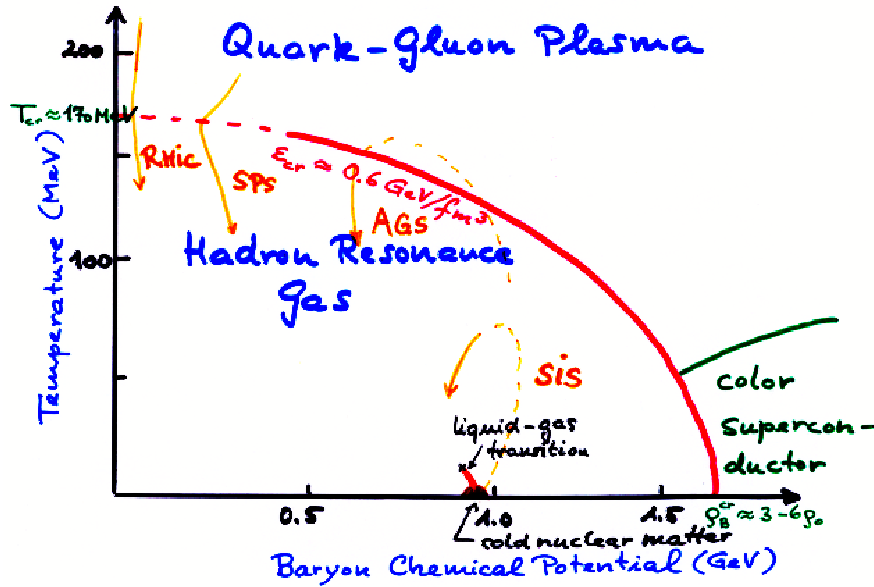 200
Quark-Gluon Plasma
Tcr ≈ 170 MeV
RHic
SPS
εcr ≈ 0.6 GeV/fm³
AGS
100
Hadron Resonance
Gas
Temperature (MeV)
SiS
color
supercon-
ductor
liquid-gas
transition
0.5
1.0
1.5
ρ_B^cr ≈ 3-6ρ₀
cold nuclear matter
Baryon Chemical Potential (GeV)